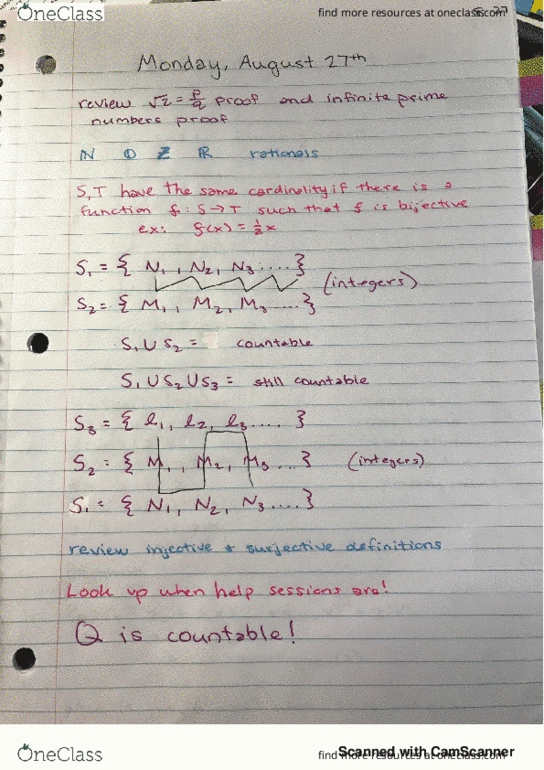 OneClass
find more resources at oneclass.com
Monday, August 27th
review √2 = p/q proof and infinite prime
numbers proof
N Q Z R rationals
S,T have the same cardinality if there is a
function f: S→T such that f is bijective
ex: f(x) = ½x
S₁ = { N₁, N₂, N₃ .... }
(integers)
S₂ = { M₁, M₂, M₃ .... }
S₁ U S₂ = countable
S₁ U S₂ U S₃ = still countable
S₃ = { l₁, l₂, l₃ .... }
S₂ = { M₁, M₂, M₃ ... } (integers)
S₁ = { N₁, N₂, N₃ .... }
review injective + surjective definitions
Look up when help sessions are!
Q is countable!
OneClass
find more resources at oneclass.com
Scanned with CamScanner